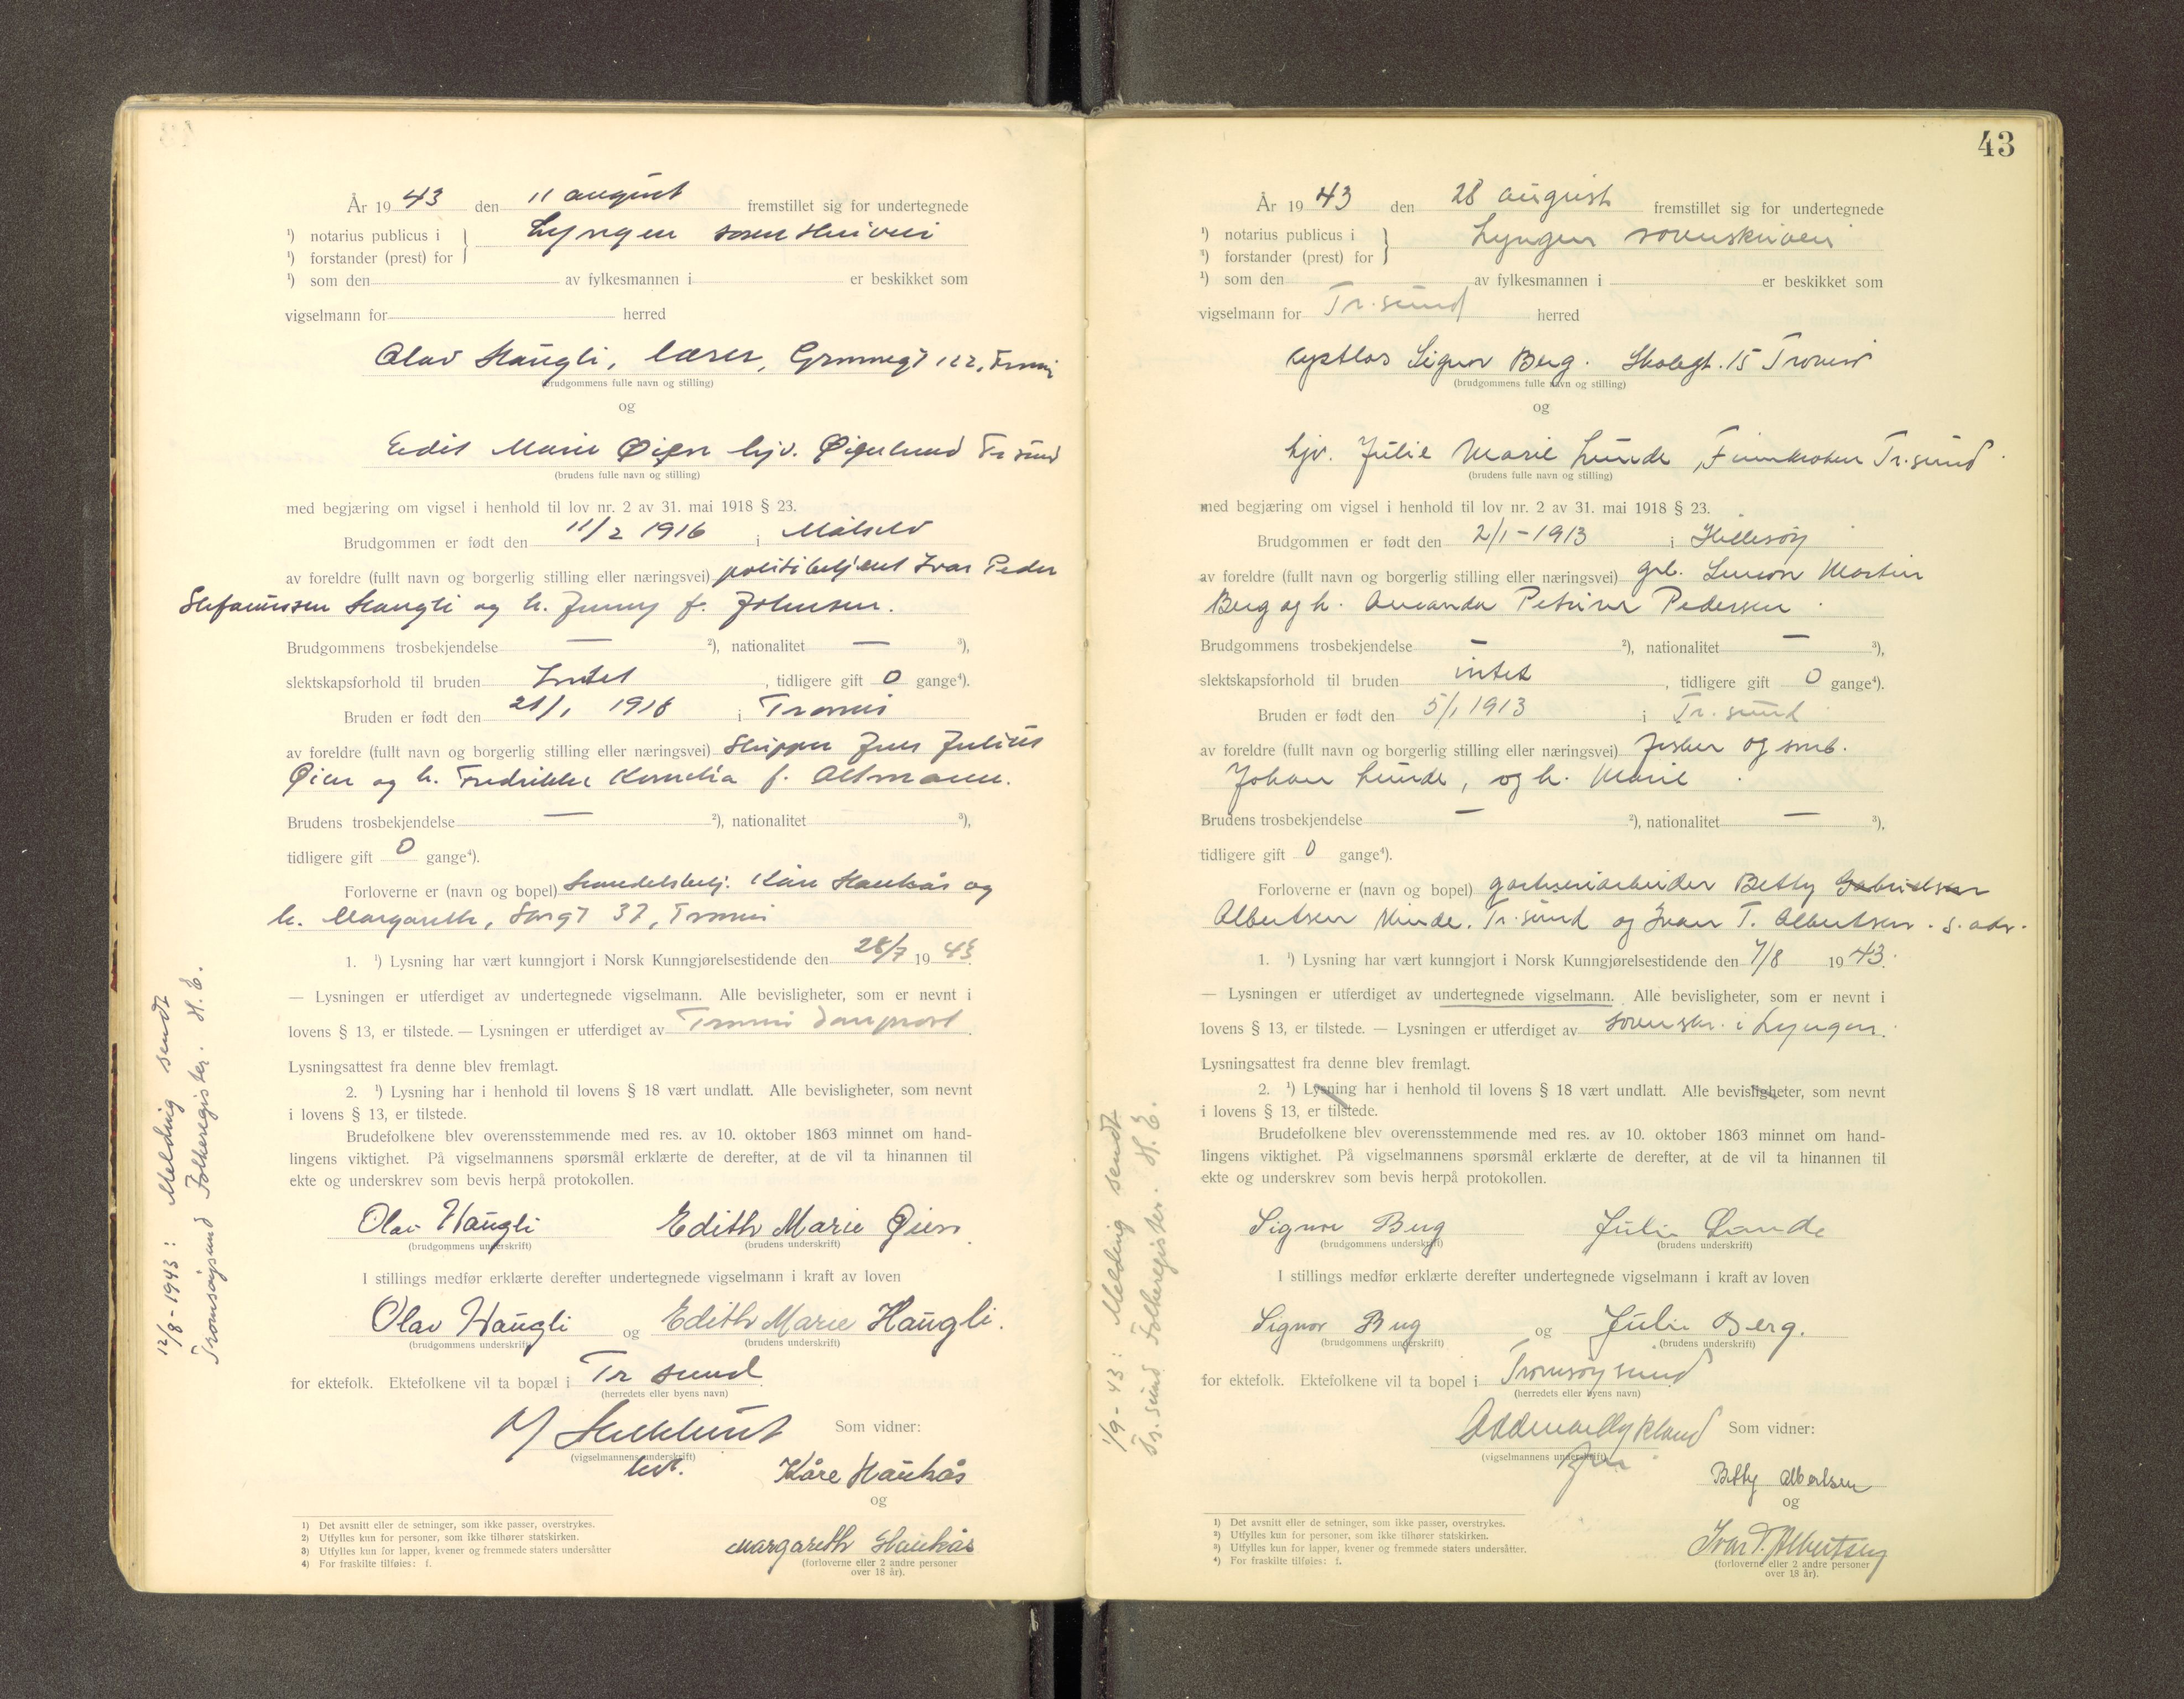 År 19 43 den 11 august fremstillet sig for undertegnede
¹) notarius publicus i } Lyngen sorenskriveri
¹) forstander (prest) for
¹) som den av fylkesmannen i er beskikket som
vigselmann for herred
Olav Haugli, lærer, Grønnegt 122, Tromsø
(brudgommens fulle navn og stilling)
og
Edit Marie Øien hjv. Tr sund
(brudens fulle navn og stilling)
med begjæring om vigsel i henhold til lov nr. 2 av 31. mai 1918 § 23.
Brudgommen er født den 11/2 1916 i Målselv
av foreldre (fullt navn og borgerlig stilling eller næringsvei) politibetjent Ivar Peder
Stefanussen Haugli og h. Jenny f. Johnsen.
Brudgommens trosbekjendelse — ²), nationalitet — ³),
slektskapsforhold til bruden Intet , tidligere gift 0 gange⁴).
Bruden er født den 21/1 1916 i Tromsø
av foreldre (fullt navn og borgerlig stilling eller næringsvei) Skipper Jens Julius
Øien og h. Fredrikke Kornelia f. Altmann.
Brudens trosbekjendelse — ²), nationalitet ³),
tidligere gift 0 gange⁴).
Forloverne er (navn og bopel) handelsbetj. Kåre Haukås og
h. Margareth, 37, Tromsø
1. ¹) Lysning har vært kunngjort i Norsk Kunngjørelsestidende den 28/7 19 43.
— Lysningen er utferdiget av undertegnede vigselmann. Alle bevisligheter, som er nevnt i
lovens § 13, er tilstede. — Lysningen er utferdiget av Tromsø domprost.
Lysningsattest fra denne blev fremlagt.
2. ¹) Lysning har i henhold til lovens § 18 vært undlatt. Alle bevisligheter, som nevnt
i lovens § 13, er tilstede.
Brudefolkene blev overensstemmende med res. av 10. oktober 1863 minnet om hand-
lingens viktighet. På vigselmannens spørsmål erklærte de derefter, at de vil ta hinannen til
ekte og underskrev som bevis herpå protokollen.
Olav Haugli Edith Marie Øien
(brudgommens underskrift) (brudens underskrift)
I stillings medfør erklærte derefter undertegnede vigselmann i kraft av loven
Olav Haugli og Edith Marie Haugli.
(brudgommens underskrift) (brudens underskrift)
for ektefolk. Ektefolkene vil ta bopæl i Tr sund
(herredets eller byens navn)
Som vidner:
(vigselmannens underskrift)
Kåre Haukås
og
Margareth Haukås
(forloverne eller 2 andre personer
over 18 år).
1) Det avsnitt eller de setninger, som ikke passer, overstrykes.
2) Utfylles kun for personer, som ikke tilhører statskirken.
3) Utfylles kun for lapper, kvener og fremmede staters undersåtter
4) For fraskilte tilføies: f.
12/8-1943: Melding sendt
Tromsøysund Folkeregister. H.E.
43
År 19 43 den 28 august fremstillet sig for undertegnede
¹) notarius publicus i } Lyngen sorenskriveri
¹) forstander (prest) for
¹) som den av fylkesmannen i er beskikket som
vigselmann for Tr.sund herred
Signor Berg. Skolegt. 15 Tromsø
(brudgommens fulle navn og stilling)
og
hjv. Julie Marie Lunde, Finnkroken Tr.sund.
(brudens fulle navn og stilling)
med begjæring om vigsel i henhold til lov nr. 2 av 31. mai 1918 § 23.
Brudgommen er født den 2/1-1913 i Hillesøy
av foreldre (fullt navn og borgerlig stilling eller næringsvei) Simon Martin
Berg og h. Amanda Petrine Pedersen.
Brudgommens trosbekjendelse — ²), nationalitet — ³),
slektskapsforhold til bruden intet , tidligere gift 0 gange⁴).
Bruden er født den 5/1 1913 i Tr. sund
av foreldre (fullt navn og borgerlig stilling eller næringsvei) fisker og smb.
Johan Lunde, og h. Marie.
Brudens trosbekjendelse — ²), nationalitet — ³),
tidligere gift 0 gange⁴).
Forloverne er (navn og bopel) gartneriarbeider Betty Gabrielsen
Albertsen Tr.sund og Ivar T. Albertsen. s. adr.
1. ¹) Lysning har vært kunngjort i Norsk Kunngjørelsestidende den 7/8 19 43.
— Lysningen er utferdiget av undertegnede vigselmann. Alle bevisligheter, som er nevnt i
lovens § 13, er tilstede. — Lysningen er utferdiget av sorenskr. i Lyngen.
Lysningsattest fra denne blev fremlagt.
2. ¹) Lysning har i henhold til lovens § 18 vært undlatt. Alle bevisligheter, som nevnt
i lovens § 13, er tilstede.
Brudefolkene blev overensstemmende med res. av 10. oktober 1863 minnet om hand-
lingens viktighet. På vigselmannens spørsmål erklærte de derefter, at de vil ta hinannen til
ekte og underskrev som bevis herpå protokollen.
Signor Berg Julie Lunde
(brudgommens underskrift) (brudens underskrift)
I stillings medfør erklærte derefter undertegnede vigselmann i kraft av loven
Signor Berg og Julie Berg.
(brudgommens underskrift) (brudens underskrift)
for ektefolk. Ektefolkene vil ta bopel i Tromsøysund
(herredets eller byens navn)
Som vidner:
(vigselmannens underskrift)
Betty Albertsen
og
Ivar T. Albertsen
(forloverne eller 2 andre personer
over 18 år).
1) Det avsnitt eller de setninger, som ikke passer, overstrykes.
2) Utfylles kun for personer, som ikke tilhører statskirken.
3) Utfylles kun for lapper, kvener og fremmede staters undersåtter.
4) For fraskilte tilføies: f.
1/9-43: Melding sendt
Tr.sund Folkeregister. H.E.